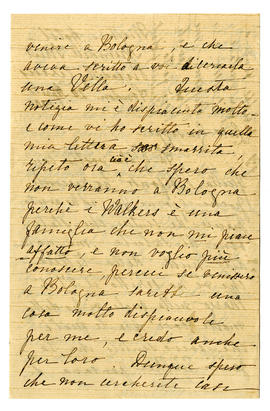 venire a Bologna, e che
aveva scritto a voi di cercarla
una Villa. Questa
notizia mi è dispiaciuta molto
e come vi ho scritto in quella
mia lettera smarrita,
ripeto ora cioè che spero che
non verranno a Bologna
perchè i Walkers è una
famiglia che non mi piace
affatto, e non voglio più
conoscere, perciò se venissero
a Bologna sarebbe una
cosa molto dispiacevole
per me, e credo anche
per loro Dunque spero
che non cercherete Case